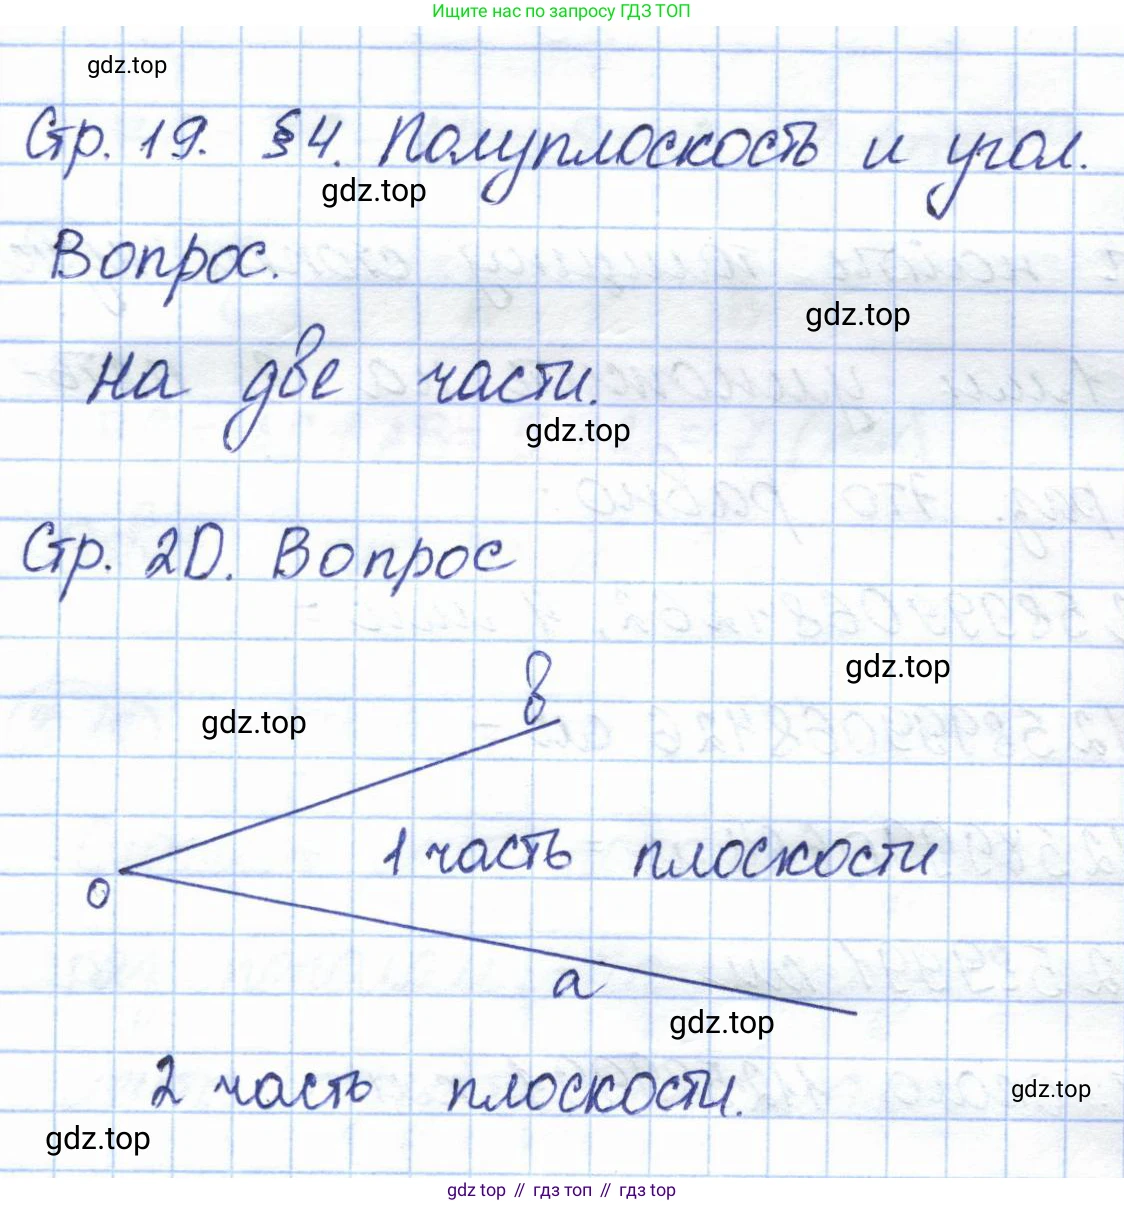 Ищите нас по запросу ГДЗ ТОП
gdz.top
Стр. 19. §4. Полуплоскость и угол.
gdz.top
Вопрос.
gdz.top
На две части.
gdz.top
Стр. 20. Вопрос
в
gdz.top
gdz.top
1 часть плоскости
О
а
gdz.top
2 часть плоскости.
gdz.top
gdz.top
gdz top // гдз топ // гдз top